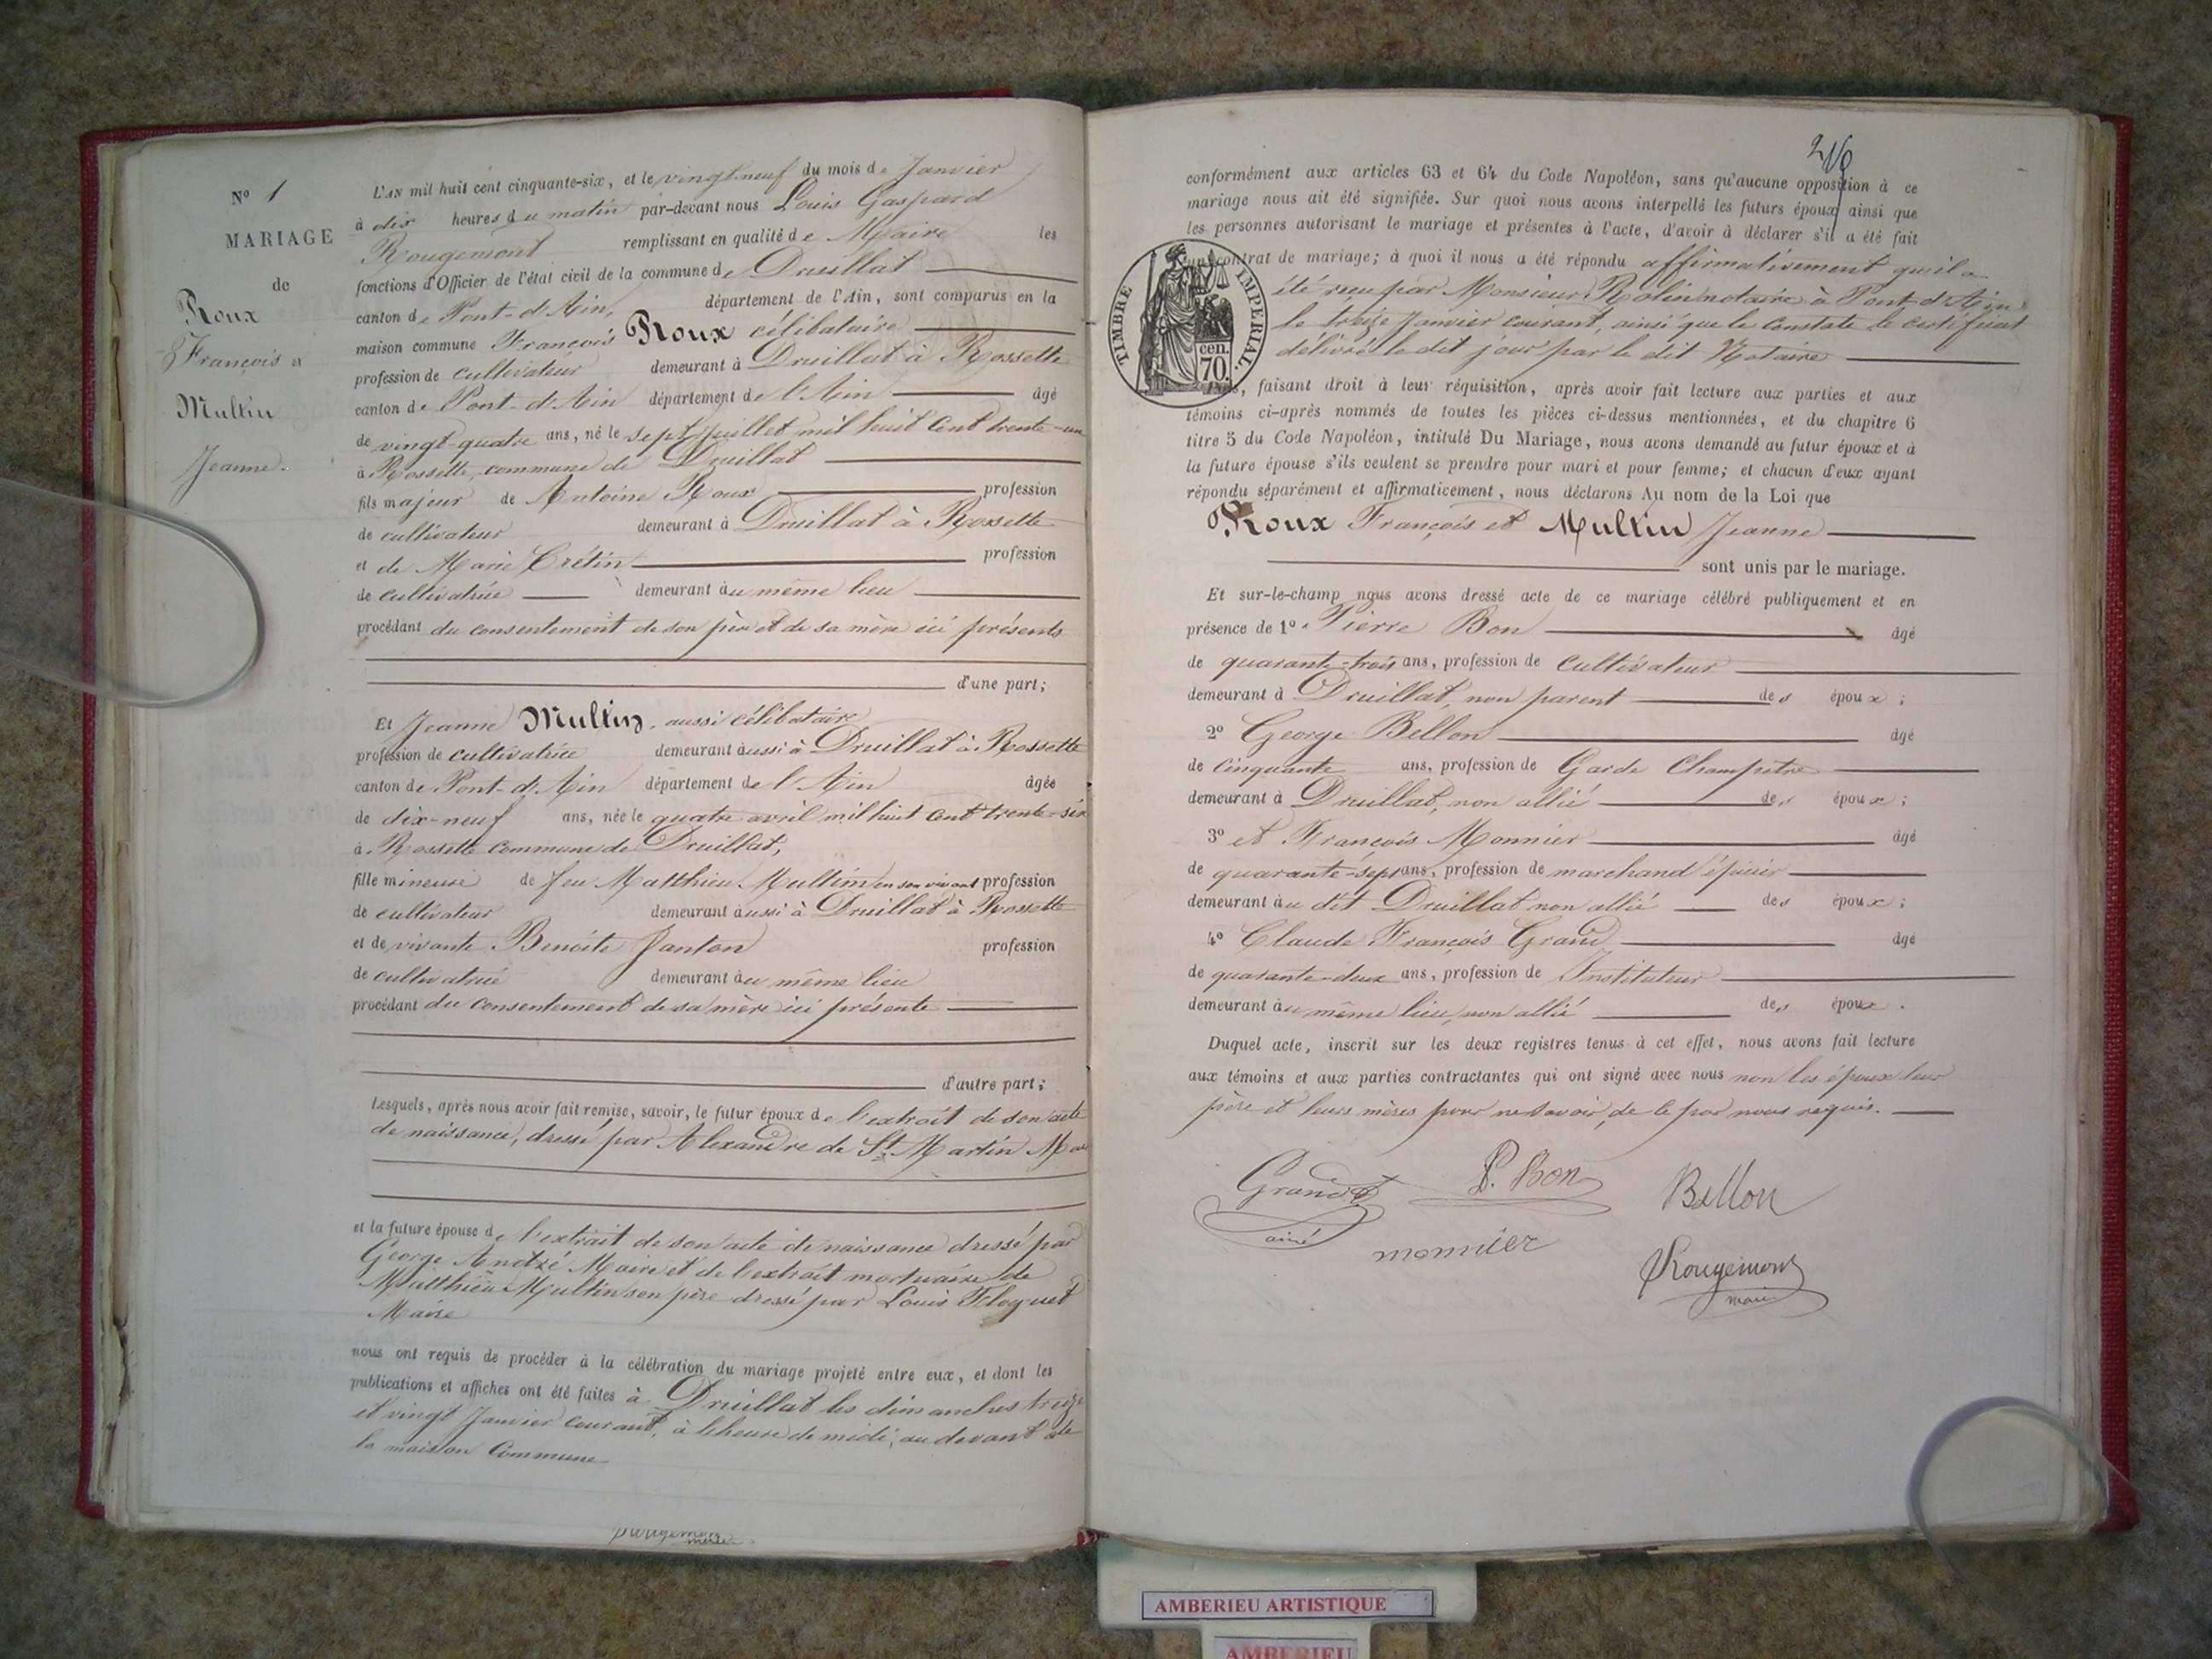 N° 1
MARIAGE
de
Roux
François et
Multin
Jeanne.
L'an mil huit cent cinquante-six, et le vingt neuf du mois de Janvier
à dix heures du matin par-devant nous Louis Gaspard
Rougemont remplissant en qualité de Maire les
fonctions d'Officier de l'état civil de la commune de Druillat
canton de Pont-d'Ain, département de l'Ain, sont comparus en la
maison commune François Roux célibataire
profession de cultivateur demeurant à Druillat à Rossette
canton de Pont-d'Ain département de l'Ain âgé
de vingt-quatre ans, né le sept juillet mil huit cent trente-un
à Rossette, commune de Druillat
fils majeur de Antoine Roux profession
de cultivateur demeurant à Druillat à Rossette
et de Marie Crétin profession
de cultivatrice demeurant au même lieu
procédant du consentement de son père et de sa mère ici présents
d'une part;
Et Jeanne Multin, aussi célibataire
profession de cultivatrice demeurant aussi à Druillat à Rossette
canton de Pont-d'Ain département de l'Ain âgée
de dix-neuf ans, née le quatre avril mil huit cent trente-six
à Rossette commune de Druillat,
fille mineure de feu Matthieu Multin en son vivant profession
de cultivateur demeurant aussi à Druillat à Rossette
et de vivante Benoite Janton profession
de cultivatrice demeurant au même lieu
procédant du consentement de sa mère ici présente
d'autre part;
Lesquels, après nous avoir fait remise, savoir, le futur époux de l'extrait de son acte
de naissance, dressé par Alexandre de St. Martin
et la future épouse de l'extrait de son acte de naissance dressé par
George André Maire et de l'extrait mortuaire de
Matthieu Multin son père dressé par Louis Floquet
Maire
nous ont requis de procéder à la célébration du mariage projeté entre eux, et dont les
publications et affiches ont été faites à Druillat les dimanches treize
et vingt Janvier courant, à l'heure de midi, au devant de
la maison Commune
Rougemont
maire
216
conformément aux articles 63 et 64 du Code Napoléon, sans qu'aucune opposition à ce
mariage nous ait été signifiée. Sur quoi nous avons interpellé les futurs époux ainsi que
les personnes autorisant le mariage et présentes à l'acte, d'avoir à déclarer s'il a été fait
un contrat de mariage; à quoi il nous a été répondu affirmativement qu'il a
été reçu par Monsieur Rolin notaire à Pont-d'Ain
le treize Janvier courant, ainsi que le constate le certificat
délivré le dit jour par le dit Notaire
TIMBRE IMPERIAL.
cen.
70.
faisant droit à leur réquisition, après avoir fait lecture aux parties et aux
témoins ci-après nommés de toutes les pièces ci-dessus mentionnées, et du chapitre 6
titre 5 du Code Napoléon, intitulé Du Mariage, nous avons demandé au futur époux et à
la future épouse s'ils veulent se prendre pour mari et pour femme; et chacun d'eux ayant
répondu séparément et affirmativement, nous déclarons Au nom de la Loi que
Roux François et Multin Jeanne
sont unis par le mariage.
Et sur-le-champ nous avons dressé acte de ce mariage célébré publiquement et en
présence de 1° Pierre Bon âgé
de quarante-trois ans, profession de cultivateur
demeurant à Druillat, non parent des époux;
2° George Bellon âgé
de cinquante ans, profession de Garde Champêtre
demeurant à Druillat, non allié des époux;
3° et François Monnier âgé
de quarante-sept ans, profession de marchand épicier
demeurant au dit Druillat non allié des époux;
4° Claude François Grand âgé
de quarante-deux ans, profession de Instituteur
demeurant au même lieu, non allié des époux.
Duquel acte, inscrit sur les deux registres tenus à cet effet, nous avons fait lecture
aux témoins et aux parties contractantes qui ont signé avec nous non les époux leur
père et leurs mères pour ne savoir, de le par nous requis.
Grand P. Bon Bellon
ainé monnier
Rougemont
maire
AMBERIEU ARTISTIQUE
AMBERIEU